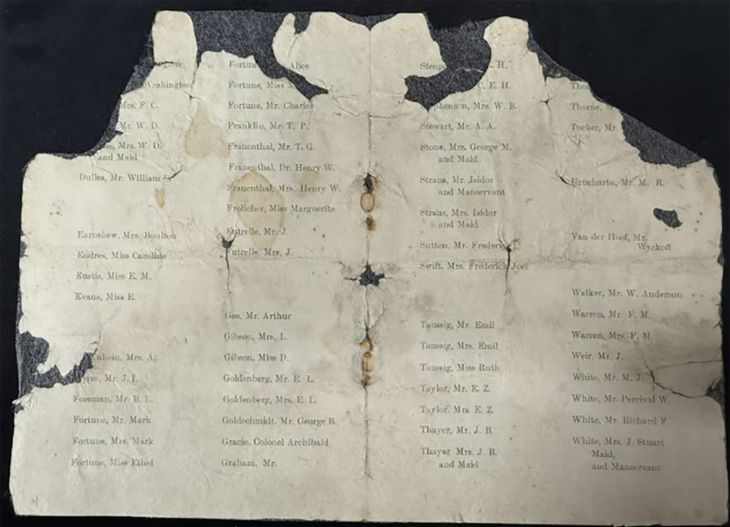 Washington
Mrs. F. C.
Mr. W. D.
Mrs. W. D.
and Maid
Dulles, Mr. William
Earnshew, Mrs. Boulton
Endres, Miss Caroline
Eustis, Miss E. M.
Evans, Miss E.
Mrs. A.
Mr. J. I.
Foreman, Mr. B. L.
Fortune, Mr. Mark
Fortune, Mrs. Mark
Fortune, Miss Ethel
Fortun Alice
Fortune, Miss
Fortune, Mr. Charles
Franklin, Mr. T. P.
Frauenthal, Mr. T. G.
Frauenthal, Dr. Henry W.
Frauenthal, Mrs. Henry W.
Frolicher, Miss Marguerite
Futrelle, Mr. J.
Futrelle, Mrs. J.
Gee, Mr. Arthur
Gibson, Mrs. L.
Gibson, Miss D.
Goldenberg, Mr. E. L.
Goldenberg, Mrs. E. L.
Goldschmidt, Mr. George B.
Gracie, Colonel Archibald
Graham, Mr.
H.
C. E. H.
phenson, Mrs. W. B.
Stewart, Mr. A. A.
Stone, Mrs. George M.
and Maid
Straus, Mr. Isidor
and Manservant
Straus, Mrs. Isidor
and Maid
Sutton, Mr. Frederic
Swift, Mrs. Frederick Joel
Taussig, Mr. Emil
Taussig, Mrs. Emil
Taussig, Miss Ruth
Taylor, Mr. E. Z.
Taylor, Mrs. E. Z.
Thayer, Mr. J. B.
Thayer Mrs. J. B.
and Maid
Tho
Thorne, M
Tucker, Mr.
Uruchurtu, Mr. M. R.
Van der Hoef, Mr.
Wyckoff
Walker, Mr. W. Anderson
Warren, Mr. F. M.
Warren, Mrs. F. M.
Weir, Mr. J.
White, Mr. M. J.
White, Mr. Percival W.
White, Mr. Richard F.
White, Mrs. J. Stuart
Maid,
and Manservant